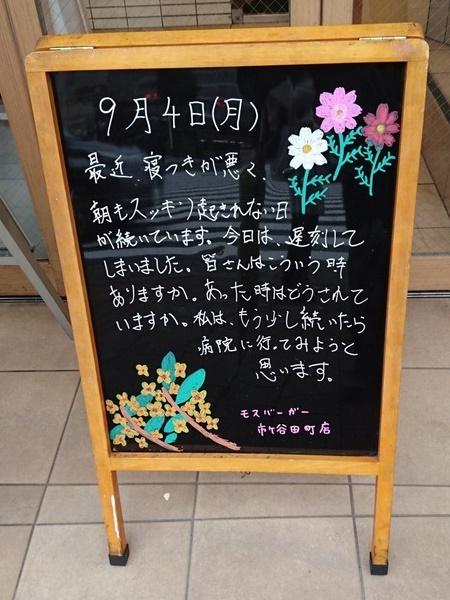 9月4日(月)
最近、寝つきが悪く、
朝もスッキリ起きれない日
が続いています。今日は、遅刻して
しまいました。皆さんはこういう時
ありますか。あった時はどうされて
いますか。私は、もう少し続いたら
病院に行ってみようと
思います。
モスバーガー
市ヶ谷田町店